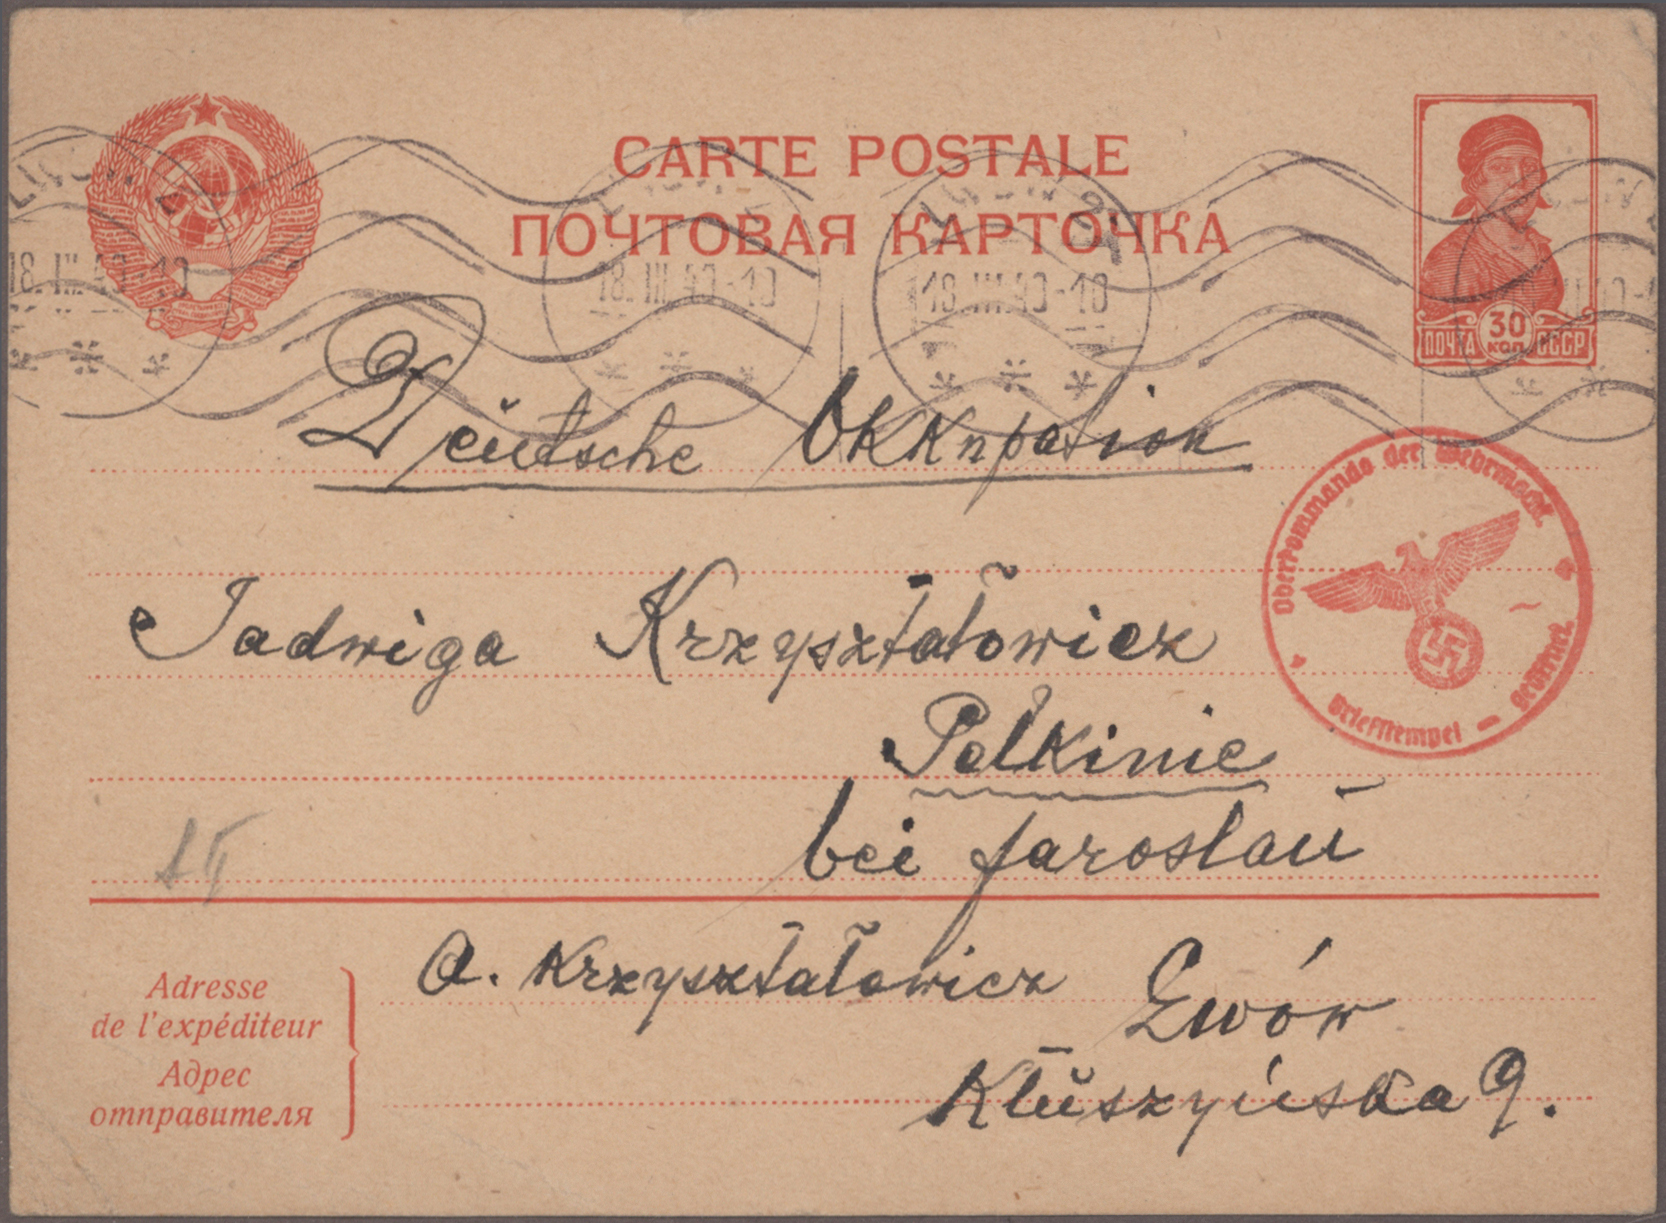 CARTE POSTALE
ПОЧТОВАЯ КАРТОЧКА
18.III.40-10
18.III.40-10
18.III.40-10
30
коп
ПОЧТА СССР
Deutsche Okkupation
Oberkommando der Wehrmacht
Briefstempel
geöffnet
Jadwiga Krzyształowicz
Pełkinie
bei Jaroslau
A. Krzyształowicz Lwów
Kłuszyńska 9.
Adresse
de l'expéditeur
Адрес
отправителя